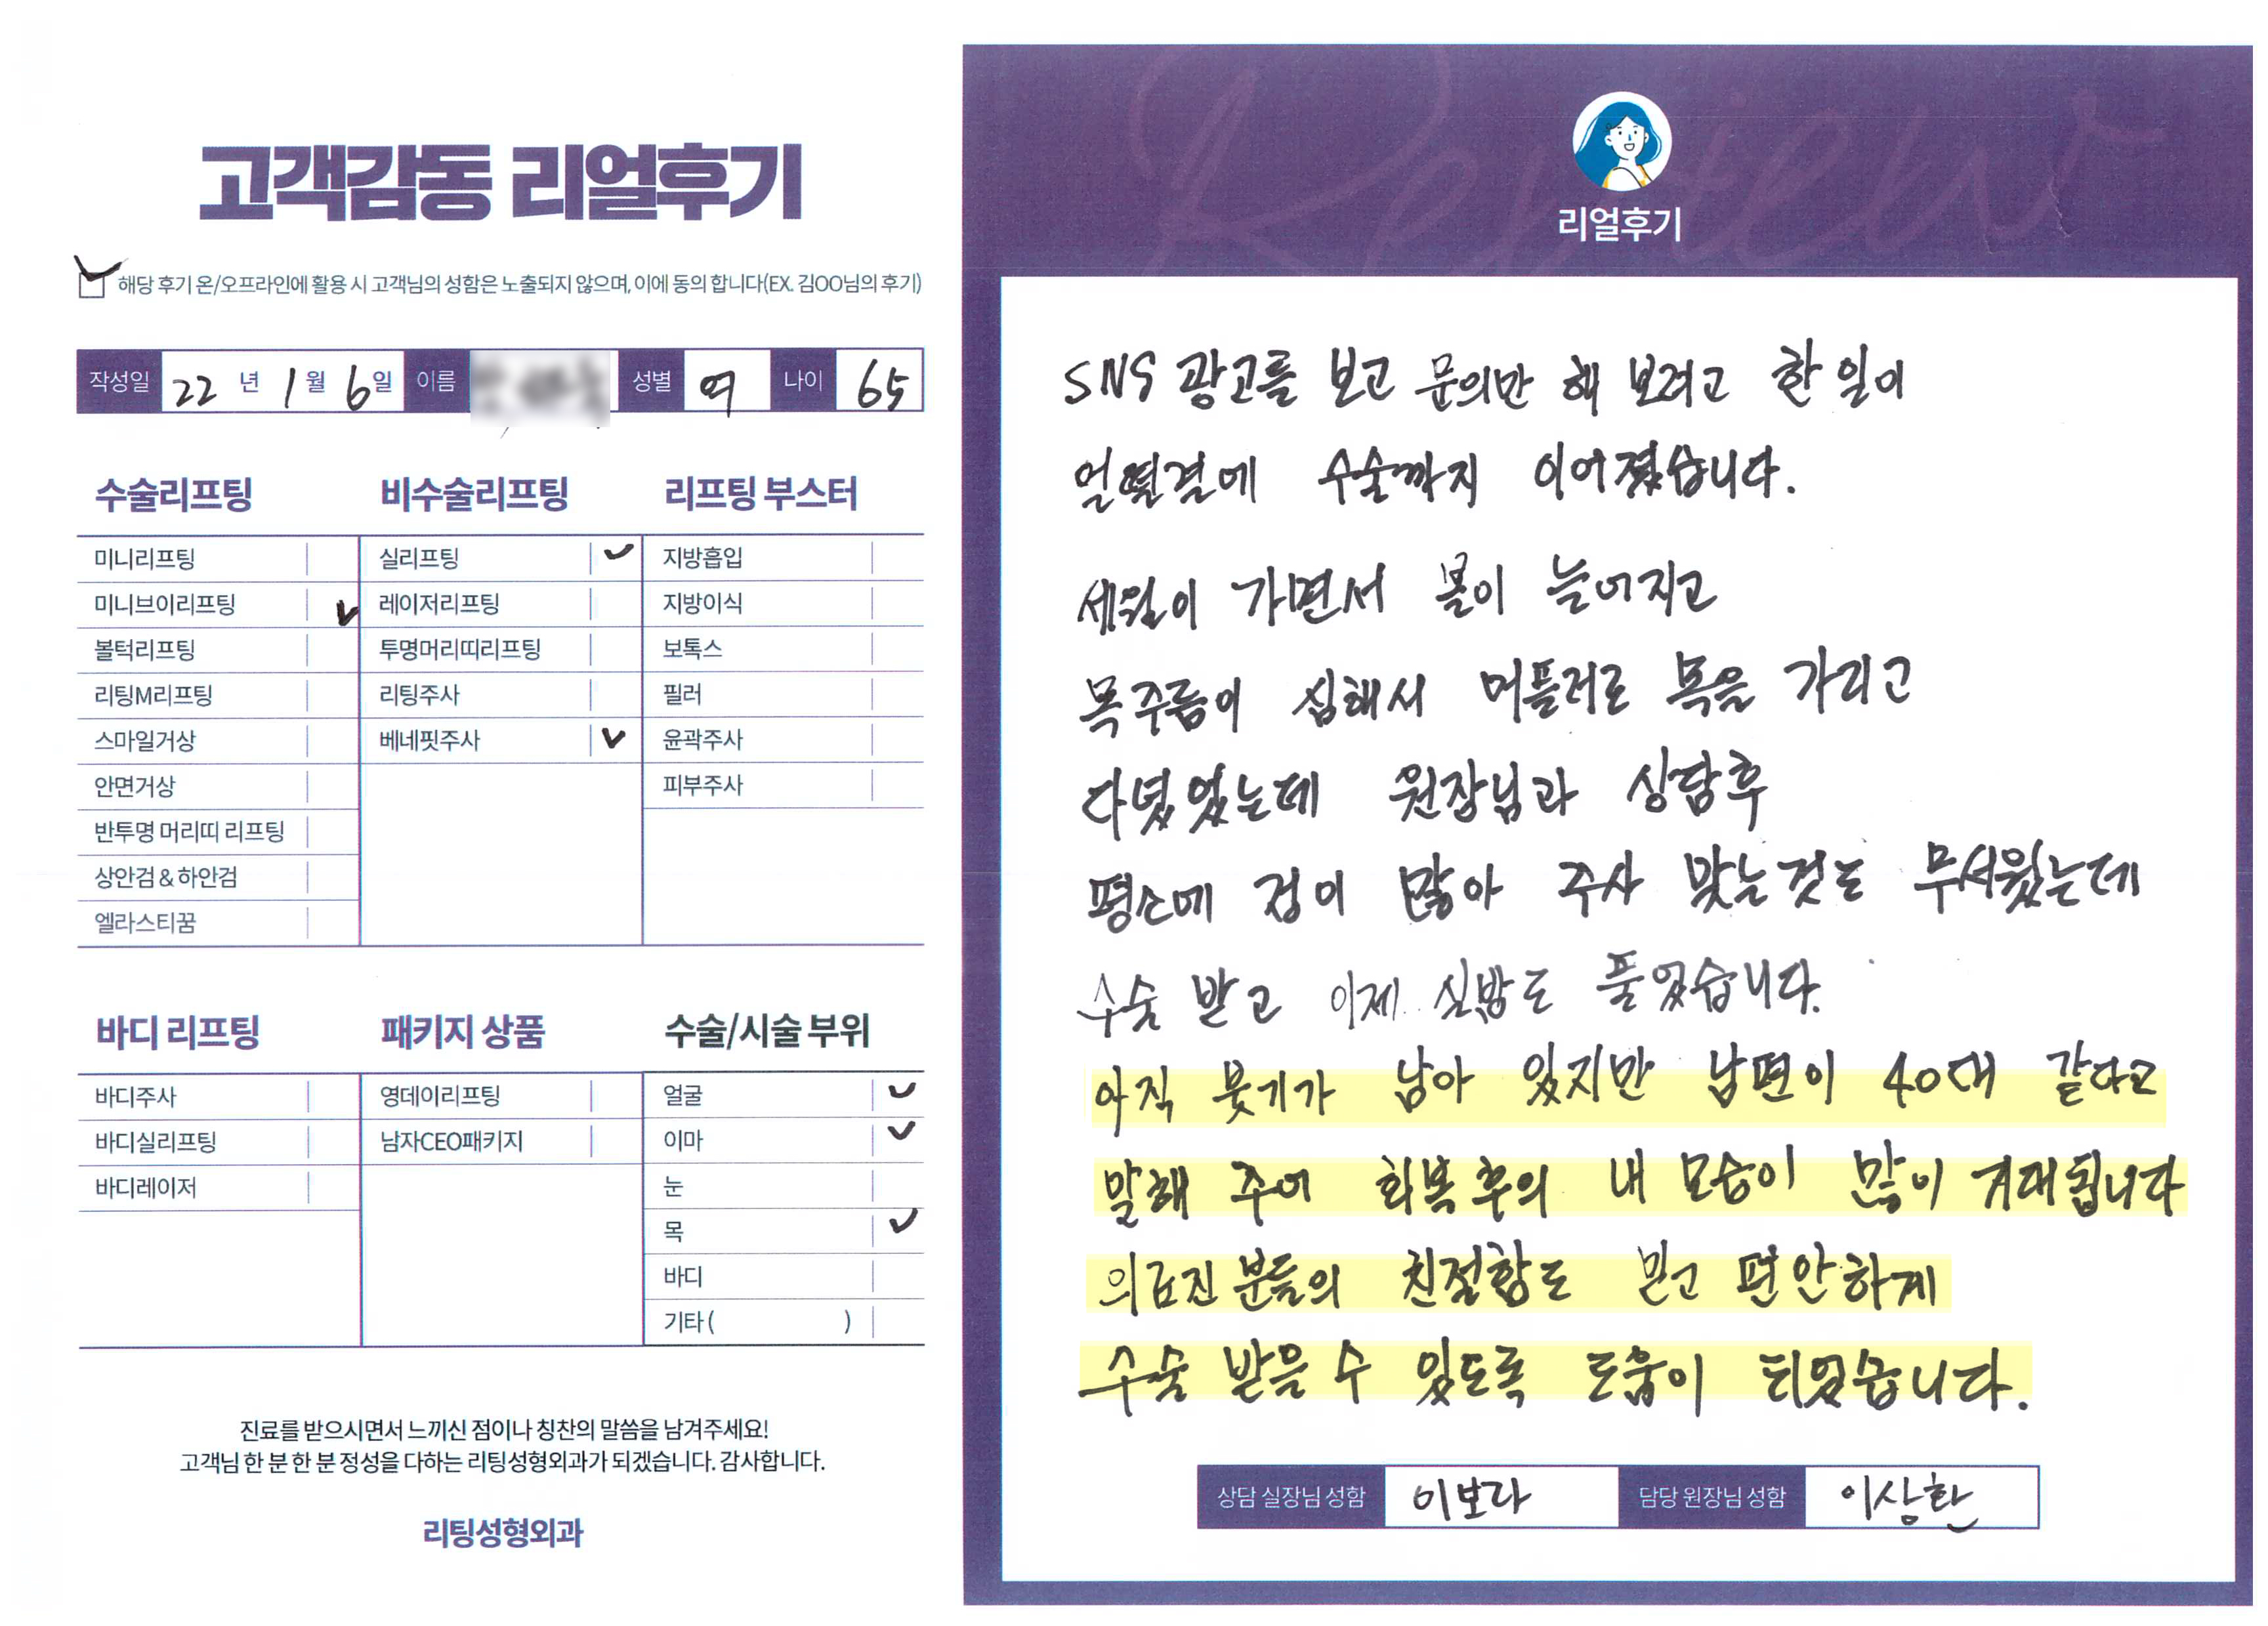 고객감동 리얼후기
해당 후기 온/오프라인에 활용 시 고객님의 성함은 노출되지 않으며, 이에 동의 합니다(EX. 김OO님의 후기)
작성일 22 년 1 월 6 일 이름 성별 여 나이 65
수술리프팅
미니리프팅
미니브이리프팅
볼턱리프팅
리팅M리프팅
스마일거상
안면거상
반투명 머리띠 리프팅
상안검 & 하안검
엘라스티꿈
비수술리프팅
실리프팅
레이저리프팅
투명머리띠리프팅
리팅주사
베네핏주사
리프팅 부스터
지방흡입
지방이식
보톡스
필러
윤곽주사
피부주사
바디 리프팅
바디주사
바디실리프팅
바디레이저
패키지 상품
영데이리프팅
남자CEO패키지
수술/시술 부위
얼굴
이마
눈
목
바디
기타 ( )
진료를 받으시면서 느끼신 점이나 칭찬의 말씀을 남겨주세요!
고객님 한 분 한 분 정성을 다하는 리팅성형외과가 되겠습니다. 감사합니다.
리팅성형외과
Review
리얼후기
SNS 광고를 보고 문의만 해 보려고 한 일이
얼떨결에 수술까지 이어졌습니다.
세월이 가면서 볼이 늘어지고
목주름이 심해서 머플러로 목을 가리고
다녔었는데 원장님과 상담후
평소에 겁이 많아 주사 맞는것도 무서웠는데
수술 받고 이제 실밥도 풀었습니다.
아직 붓기가 남아 있지만 남편이 40대 같다고
말해 주어 회복후의 내 모습이 많이 기대됩니다
의료진분들의 친절함도 믿고 편안하게
수술 받을 수 있도록 도움이 되었습니다.
상담 실장님 성함 이보라 담당 원장님 성함 이상환